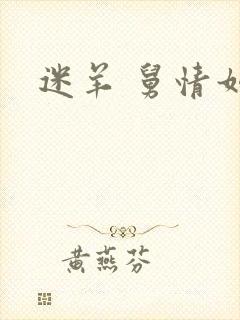 迷羊 舅情
黄燕芬